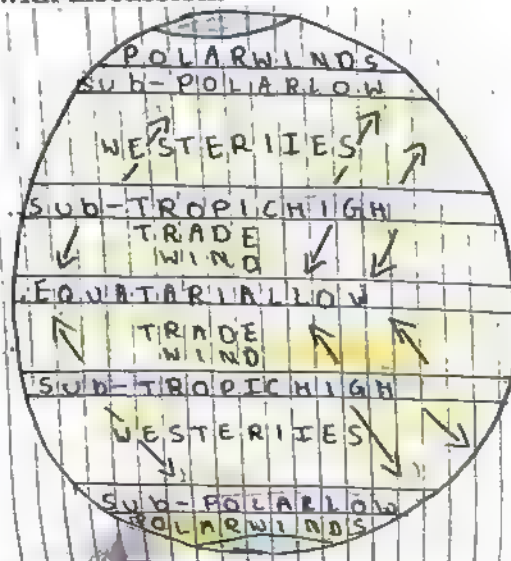 POLARWINDS
SUb-POLARLOW
WESTERIIES
SUb-TROPICHIGH
TRADE
WIND
EQUATARIALLOW
TRADE
WIND
SUb-TROPICHIGH
WESTERIIES
SUb-POLARLOW
POLARWINDS